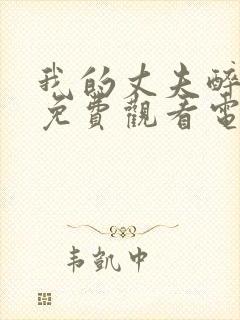 我的丈夫醉
免費觀看電
韦凯中